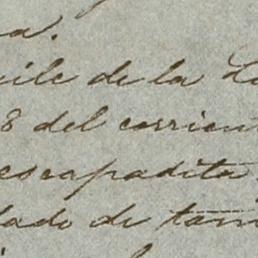 a.
ile de la
8 del corrien
escapadita
lado de tam